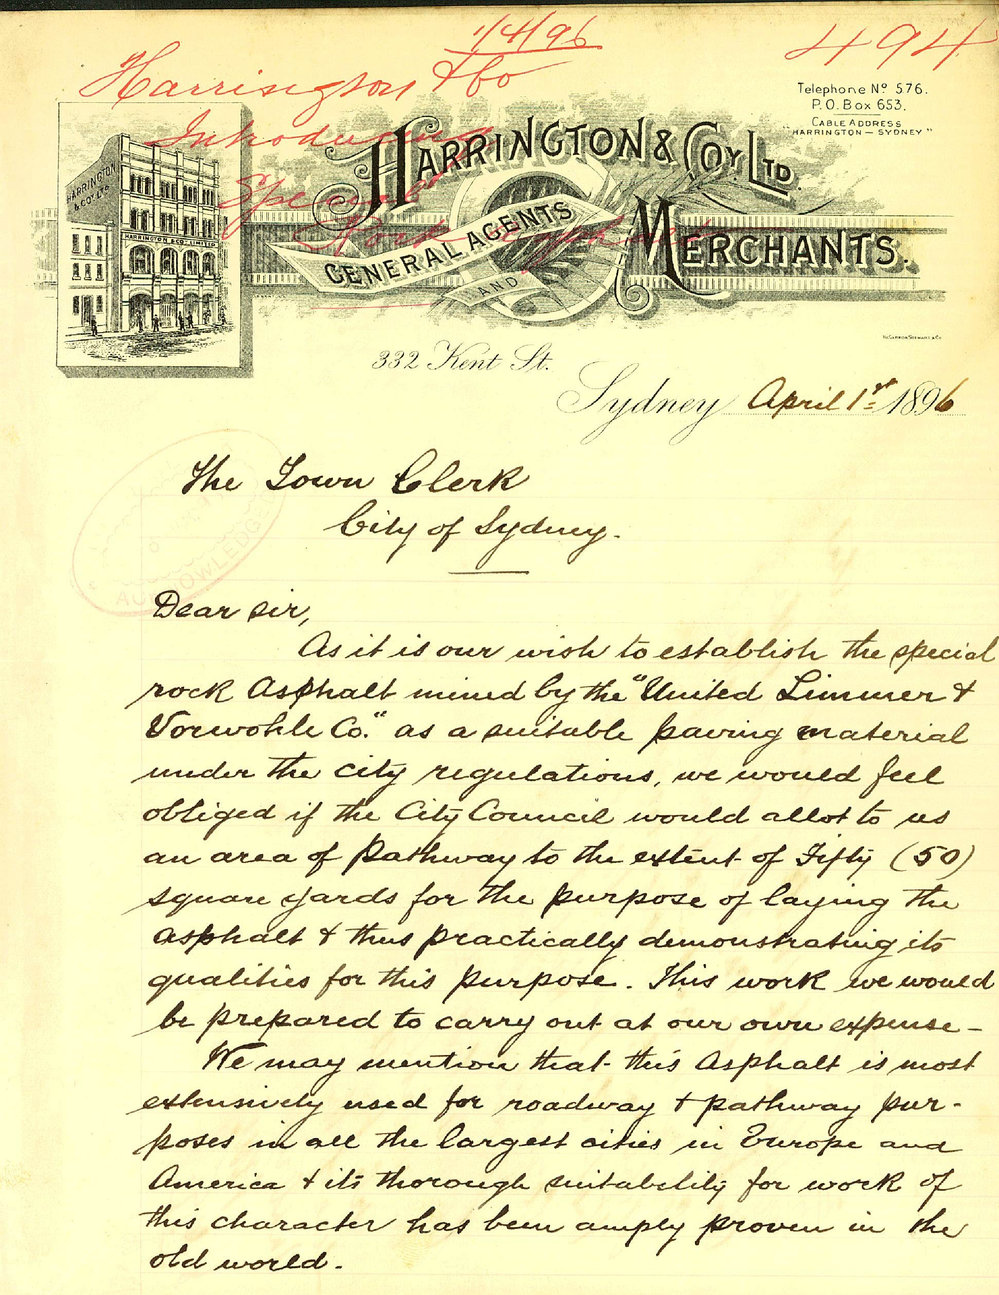 1/4/96
494
Harrington & Co
Introducing
Special
Rock Asphalt
Telephone No 576.
P.O. Box 653.
CABLE ADDRESS
"HARRINGTON — SYDNEY"
HARRINGTON & COY LTD.
HARRINGTON & COY LTD
HARRINGTON & COY LIMITED
GENERAL AGENTS
AND
MERCHANTS.
332 Kent St.
Sydney April 1st 1896
The Town Clerk
City of Sydney.
ACKNOWLEDGED
Dear Sir,
As it is our wish to establish the special
rock Asphalt mined by the "United Limmer &
Vorwohle Co." as a suitable paving material
under the city regulations, we would feel
obliged if the City Council would allot to us
an area of pathway to the extent of Fifty (50)
square yards for the purpose of laying the
asphalt & thus practically demonstrating its
qualities for this purpose. This work we would
be prepared to carry out at our own expense –
We may mention that this Asphalt is most
extensively used for roadway & pathway pur-
poses in all the largest cities in Europe and
America & its thorough suitability for work of
this character has been amply proven in the
old world.